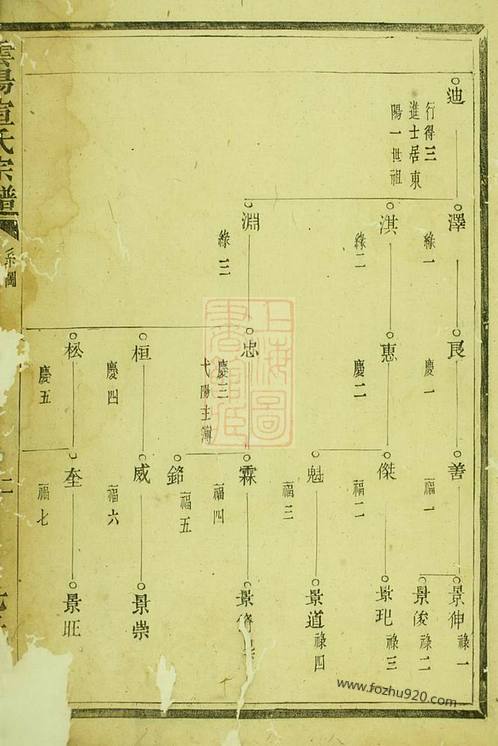 迪
行得三
進士居東
陽一世祖
澤
綠一
淇
綠二
淵
綠三
良
慶一
惠
慶二
忠
慶三
弋陽主簿
桓
慶四
松
慶五
善
福一
傑
福二
魁
福三
霖
福四
鉻
福五
威
福六
奎
福七
景伸
祿一
景俊
祿二
景玘
祿三
景道
祿四
景崇
景旺
雲陽宣氏宗譜
系圖
上海圖書館藏
www.fozhu920.com